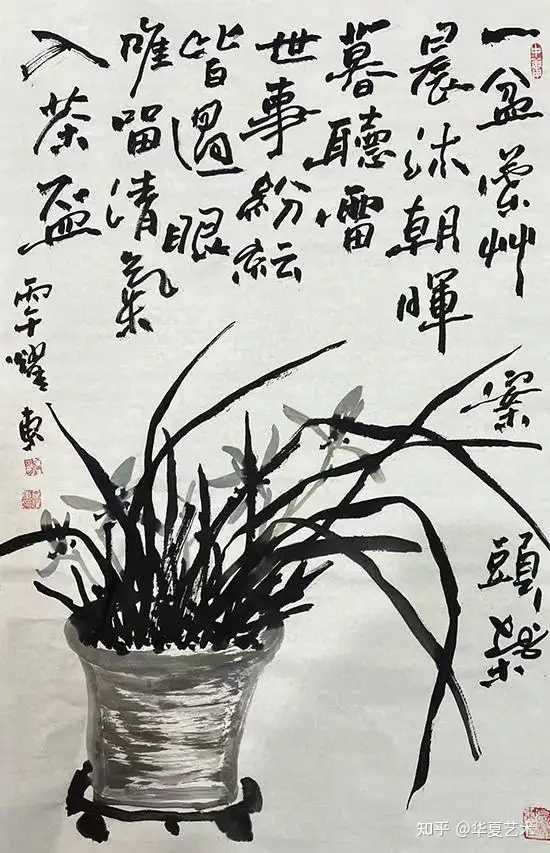 一盆蘭艸案頭栽
晨沐朝暉
暮聽雷
世事紛紜
皆過眼
唯留清氣
入茶盃
丙午耀東
知乎 @华夏艺术